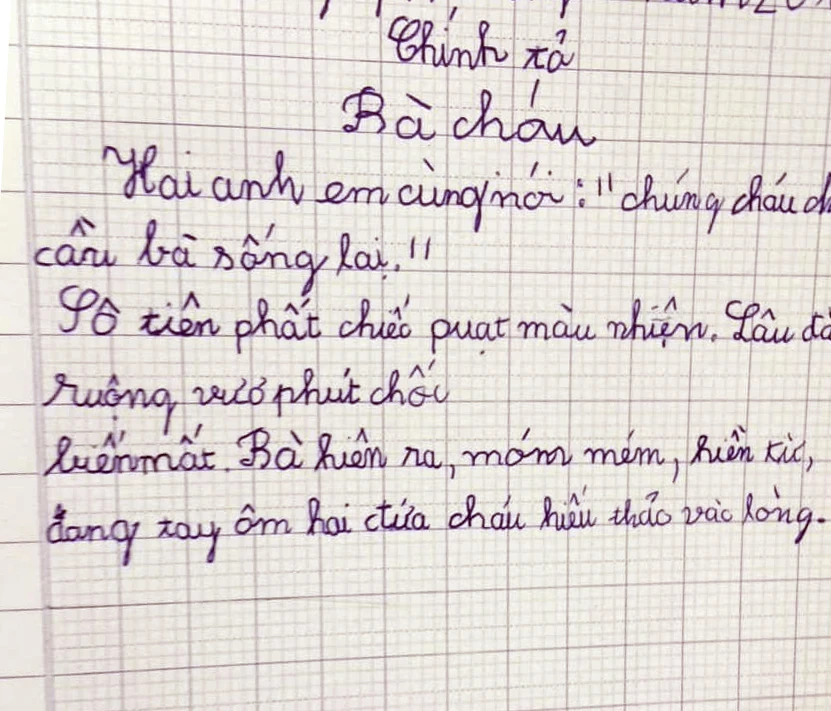 Chính tả
Bà cháu
Hai anh em cùng nói: "chúng cháu ch
cầu bà sống lại."
Cô tiên phất chiếc quạt màu nhiện. Lâu đà
ruộng vườ phút chốc
biến mất. Bà hiện ra, móm mém, hiền từ,
đang tay ôm hai đứa cháu hiếu thảo vào lòng.